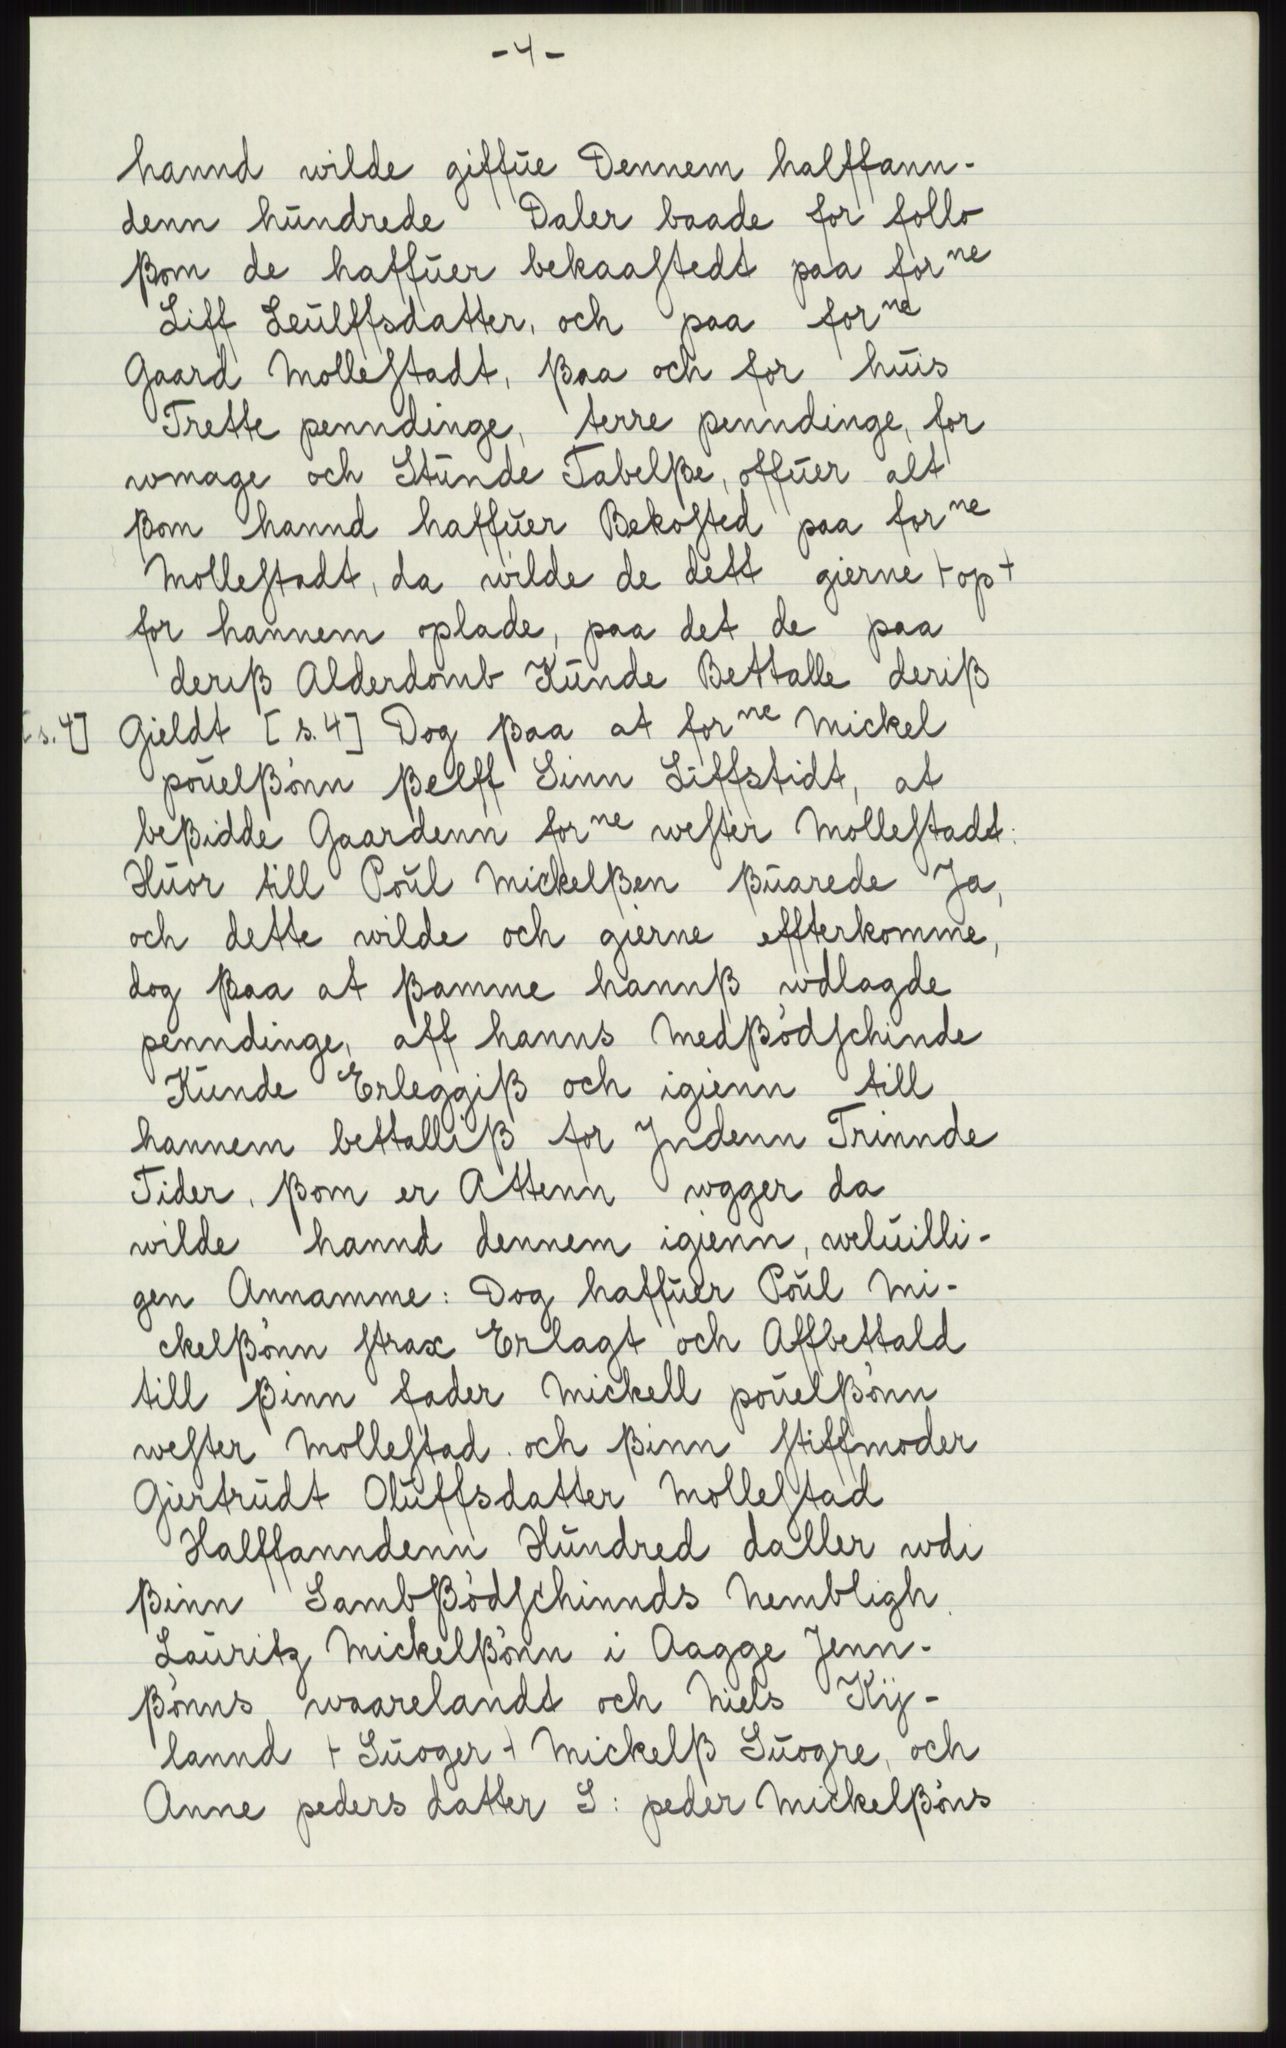 -4-
hannd wilde giffüe Dennem halffann-
denn hündrede Daler baade for follo
ßom de haffüer bekaastedt paa forne
Liff Leülffsdatter, och paa forne
Gaard Mollestadt, ßaa och for hüis
Trette penndinge, terre penndinge, for
wmage och Stünde Tabelße, offüer alt
ßom hannd haffüer Bekosted paa forne
Mollestadt, da wilde de dett gierne + op +
for hannem oplade, paa det de paa
deriß Alderdomb Künde Bettalle deriß
[s. 4] Gieldt [s. 4] Dog ßaa at forne Mickel
poüelßønn ßelff Sinn Liffstidt, at
beßidde Gaardenn forne wester Mollestadt:
Hüor till Poül Mickelßen ßüarede Ja,
och dette wilde och gierne effterkomme,
dog ßaa at ßamme hannß wdlagde
penndinge, aff hanns Medßødschinde
Künde Erleggiß och igienn till
hannem bettalliß for Jndenn Trinnde
Tider, ßom er Attenn wgger da
wilde hannd dennem igienn, welüilli-
gen Annamme: Dog haffüer Poül Mi-
ckelßønn strax Erlagt och Affbettald
till ßinn fader Mickell poüelßønn
wester Mollestad och ßinn stiffmoder
Giertrüdt Olüffsdatter Mollestad
Halffanndenn Hündred daller wdi
ßinn Sambßødschinnds Nembligh
Lauritz Mickelßønn i Aagge Jenn-
ßønns waarelandt och Niels Kij-
lannd + Süoger + Mickelß Süogre, och
Anne peders datter S: peder Mickelßøns